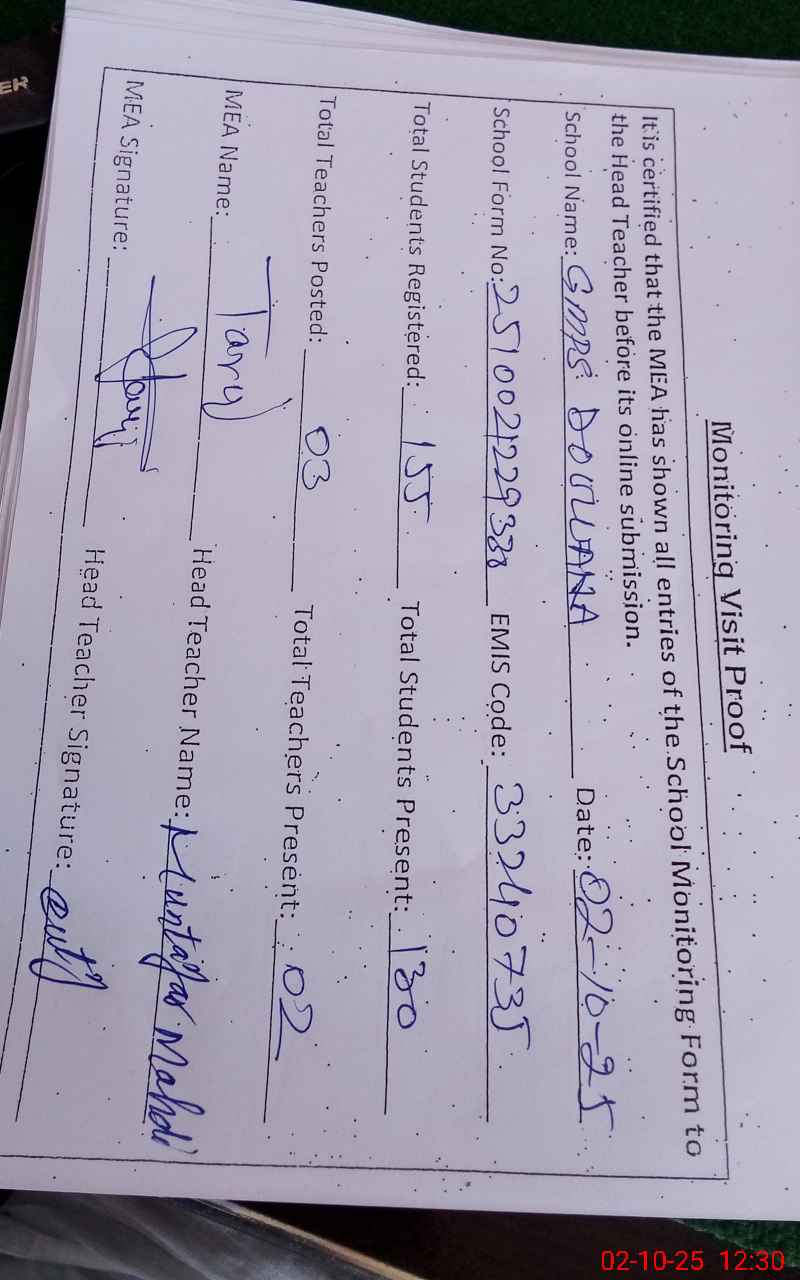 Monitoring Visit Proof
It is certified that the MEA has shown all entries of the School Monitoring Form to
the Head Teacher before its online submission.
School Name: GMPS DOLUANA Date: 02-10-25
School Form No: 2510021229380 EMIS Code: 33240735
Total Students Registered: 155 Total Students Present: 130
Total Teachers Posted: 03 Total Teachers Present: 02
MEA Name: Tariq Head Teacher Name: Muntazar Mahdi
MEA Signature: Tariq Head Teacher Signature:
ER
02-10-25 12:30